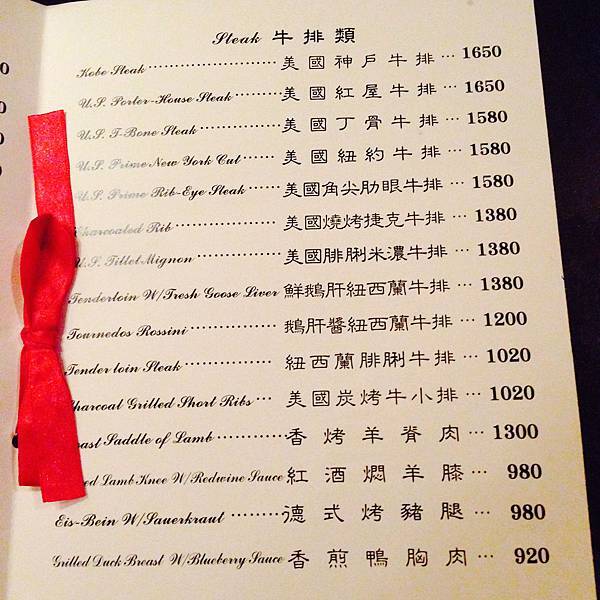 Steak 牛排類
Kobe Steak 美國神戶牛排 1650
U.S. Porter-House Steak 美國紅屋牛排 1650
U.S. T-Bone Steak 美國丁骨牛排 1580
U.S. Prime New York Cut 美國紐約牛排 1580
U.S. Prime Rib-Eye Steak 美國角尖肋眼牛排 1580
Charcoaled Rib 美國燒烤捷克牛排 1380
U.S. Fillet Mignon 美國腓脷米濃牛排 1380
Tenderloin W/Fresh Goose Liver 鮮鵝肝紐西蘭牛排 1380
Tournedos Rossini 鵝肝醬紐西蘭牛排 1200
Tender loin Steak 紐西蘭腓脷牛排 1020
Charcoal Grilled Short Ribs 美國炭烤牛小排 1020
Saddle of Lamb 香烤羊脊肉 1300
Lamb Knee W/Redwine Sauce 紅酒燜羊膝 980
Eis-Bein W/Sauerkraut 德式烤豬腿 980
Grilled Duck Breast W/Blueberry Sauce 香煎鴨胸肉 920